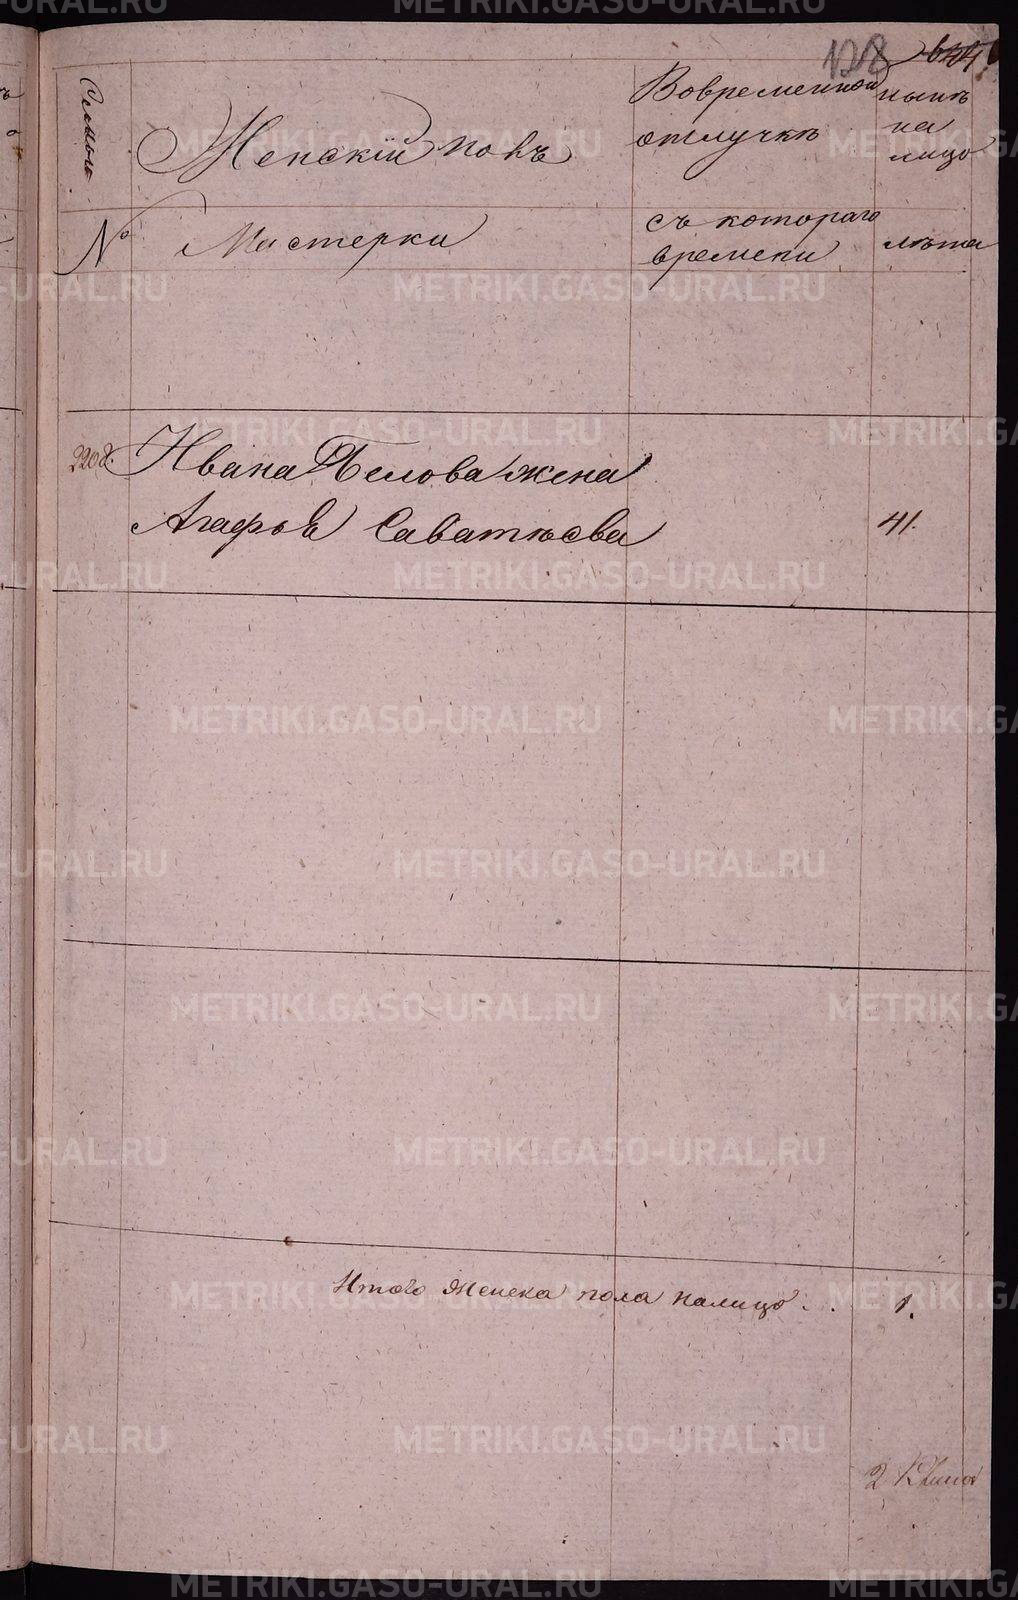 128
Семьи
Женскій полъ
Вовременной
отлучкѣ
нынѣ
на
лицо
№
Мастерки
съ котораго
времени
лѣта
2208.
Ивана Бѣлова жена
Агафья Саватѣева
41.
Итого женска пола налицо . .
1.
METRIKI.GASO-URAL.RU